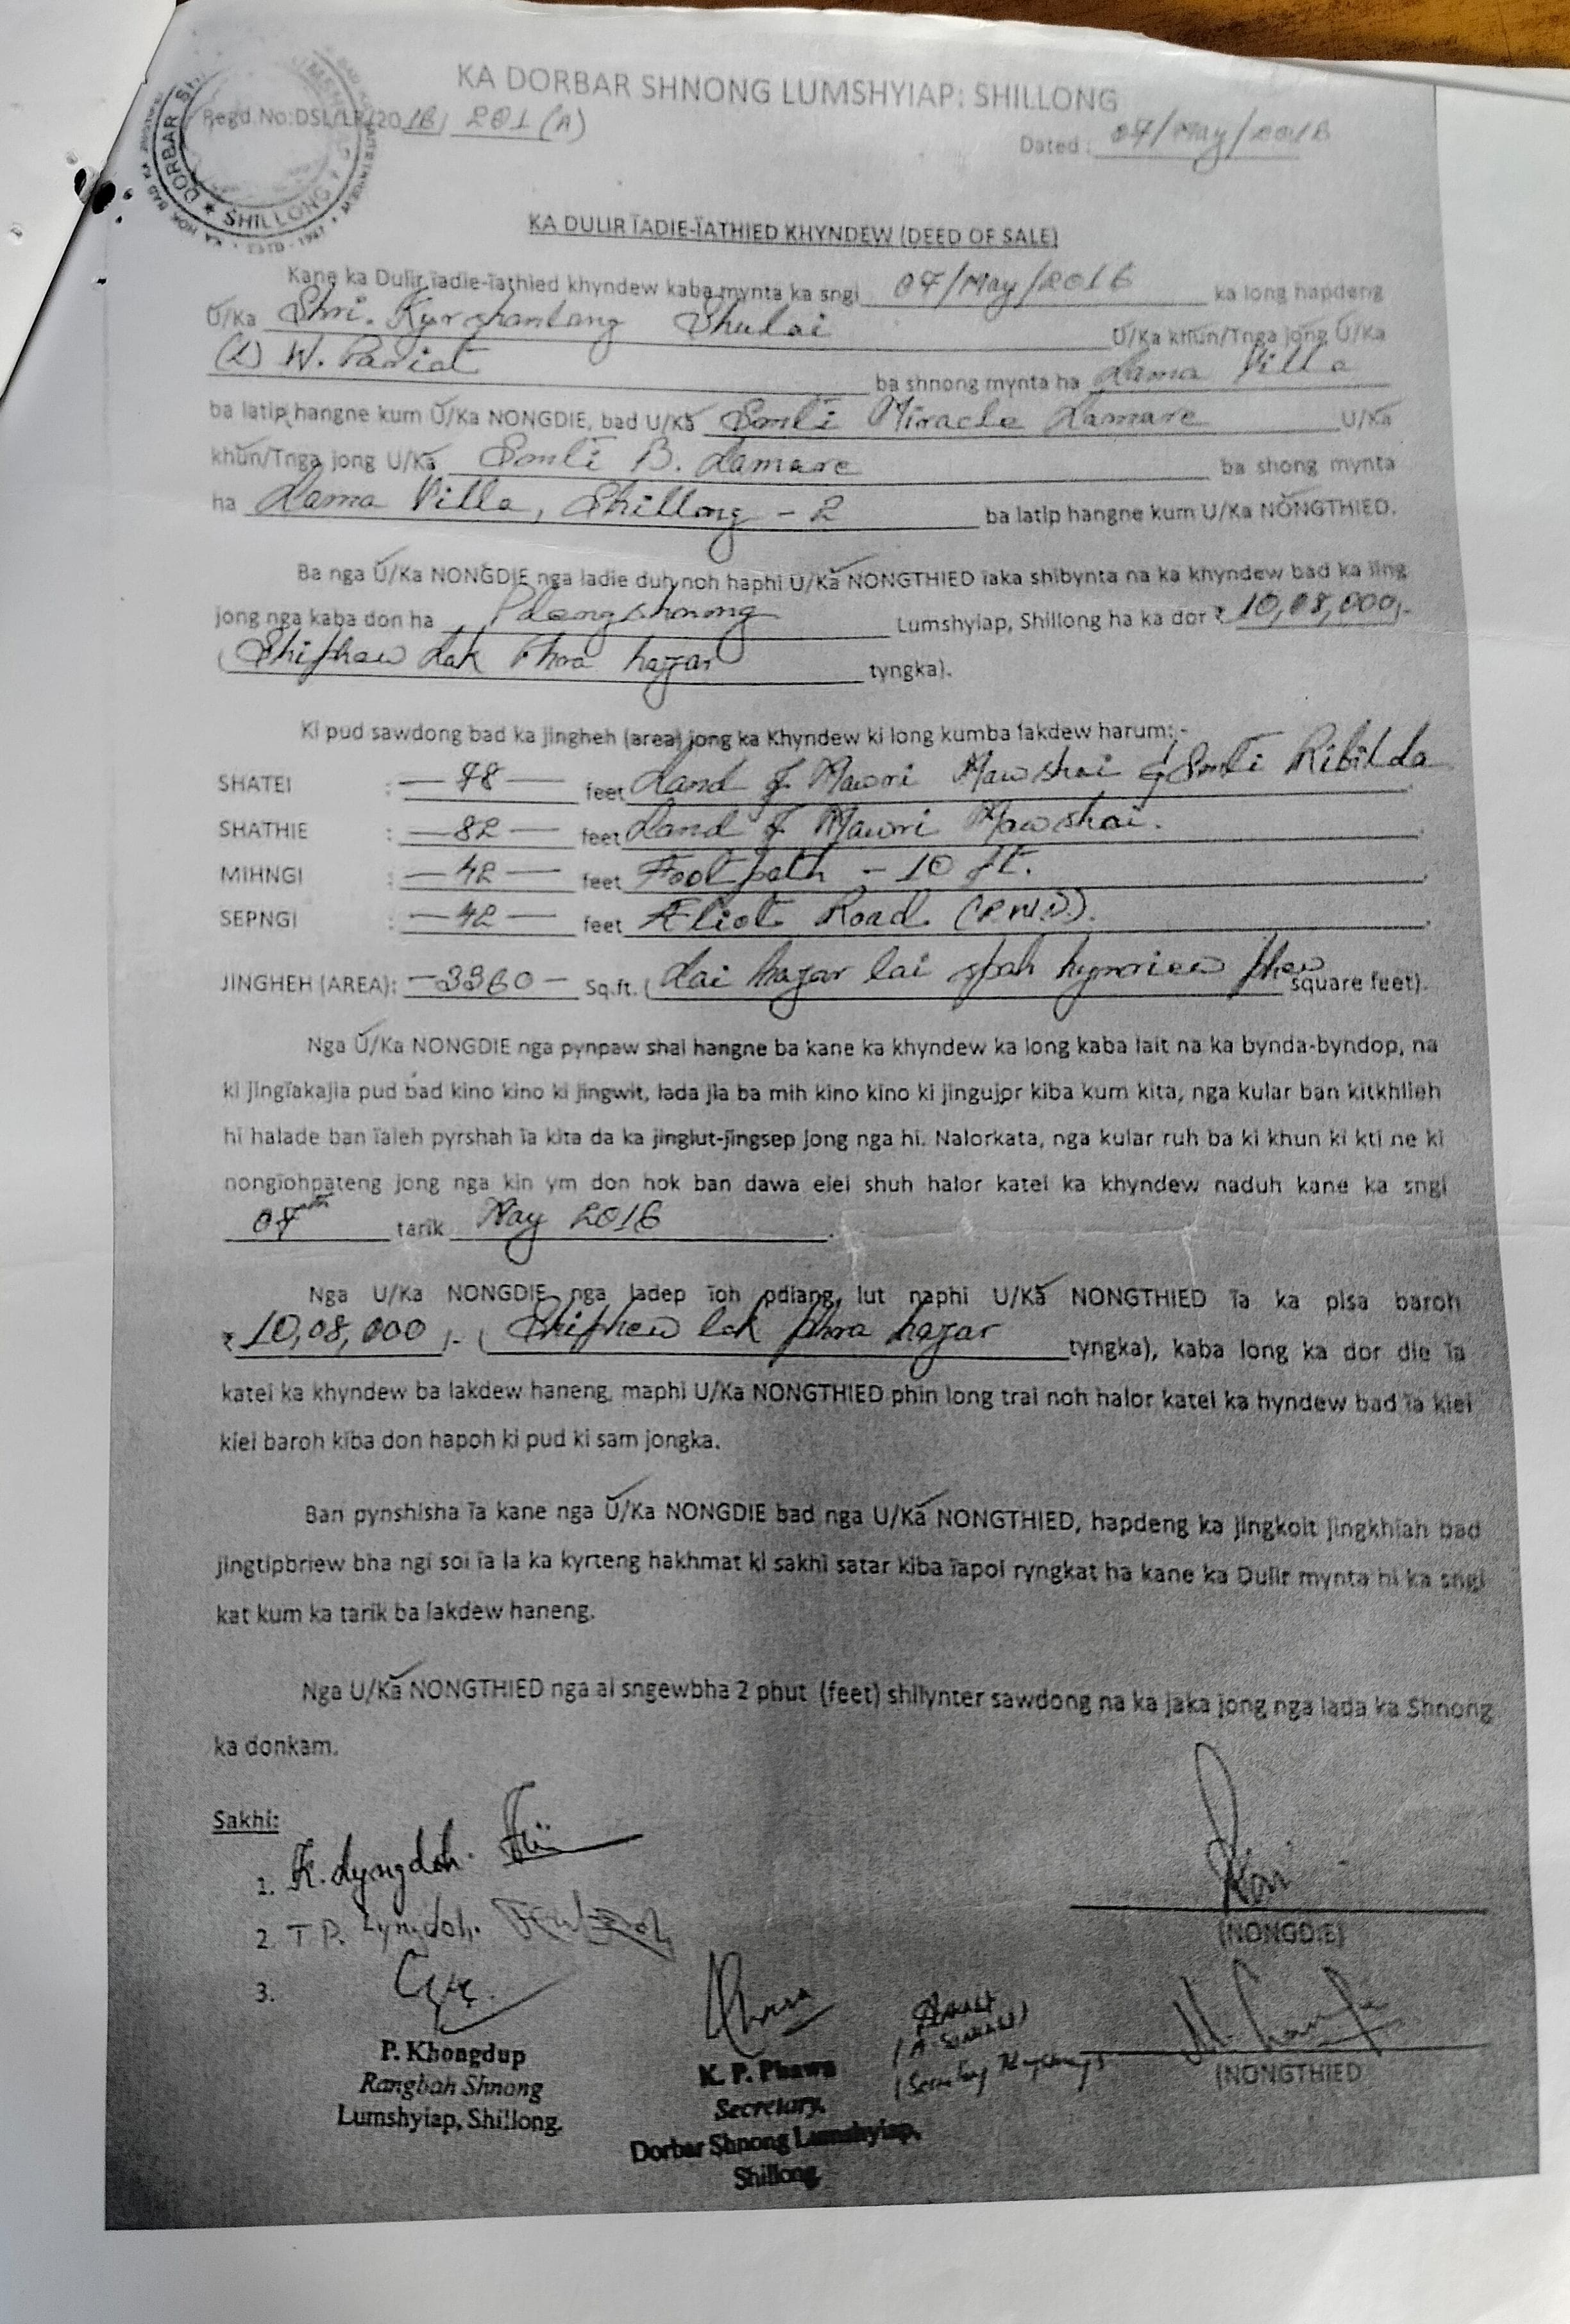 KA DORBAR SHNONG LUMSHYIAP: SHILLONG
Regd.No:DSL/LR/2016/ 201 (A)
Dated: 07/May/2016
DORBAR SHILLONG ESTD - 1947
KA DULIR ÏADIE-ÏATHIED KHYNDEW (DEED OF SALE)
Kane ka Dulir ïadie-ïathied khyndew kaba mynta ka sngi 07/May/2016 ka long hapdeng
U/Ka Shri. Kyrshanlang Dhulai U/Ka khun/Tnga jong U/Ka
(L) W. Pariat ba shnong mynta ha Lama Villa
ba latip hangne kum U/Ka NONGDIE, bad U/Ka Smti Miracle Lamare U/Ka
khun/Tnga jong U/Ka Smti B. Lamare ba shong mynta
ha Lama Villa, Shillong - 2 ba latip hangne kum U/Ka NONGTHIED.
Ba nga U/Ka NONGDIE nga ladie duh noh haphi U/Ka NONGTHIED ïaka shibynta na ka khyndew bad ka ïing
jong nga kaba don ha Pdengshnong Lumshyiap, Shillong ha ka dor ₹ 10,08,000/-
(Shiphew Lak Phra hazar tyngka).
Ki pud sawdong bad ka jingheh (area) jong ka Khyndew ki long kumba lakdew harum:-
SHATEI : — 78 — feet Land of Mawri Mawshai & Smti Ribilda
SHATHIE : — 82 — feet Land of Mawri Mawshai.
MIHNGI : — 42 — feet Foot path - 10 ft.
SEPNGI : — 42 — feet Eliot Road (P.W.D).
JINGHEH (AREA): - 3360 - Sq.ft. (Lai hazar lai spah hynriew phew square feet).
Nga U/Ka NONGDIE nga pynpaw shai hangne ba kane ka khyndew ka long kaba lait na ka bynda-byndop, na
ki jingïakajia pud bad kino kino ki jingwit, lada jia ba mih kino kino ki jingujor kiba kum kita, nga kular ban kitkhlieh
hi halade ban ïaleh pyrshah ïa kita da ka jinglut-jingsep jong nga hi. Nalorkata, nga kular ruh ba ki khun ki kti ne ki
nongïohpateng jong nga kin ym don hok ban dawa eiei shuh halor katei ka khyndew naduh kane ka sngi
07th tarik May 2016.
Nga U/Ka NONGDIE nga ladep ïoh pdiang lut naphi U/Ka NONGTHIED ïa ka pisa baroh
₹ 10,08,000/- (Shiphew lak phra hazar tyngka), kaba long ka dor die ïa
katei ka khyndew ba lakdew haneng, maphi U/Ka NONGTHIED phin long trai noh halor katei ka hyndew bad ïa kiei
kiei baroh kiba don hapoh ki pud ki sam jongka.
Ban pynshisha ïa kane nga U/Ka NONGDIE bad nga U/Ka NONGTHIED, hapdeng ka jingkoit jingkhïah bad
jingtipbriew bha ngi soi ïa la ka kyrteng hakhmat ki sakhi satar kiba ïapoi ryngkat ha kane ka Dulir mynta hi ka sngi
kat kum ka tarik ba lakdew haneng.
Nga U/Ka NONGTHIED nga ai sngewbha 2 phut (feet) shilynter sawdong na ka jaka jong nga lada ka Shnong
ka donkam.
Sakhi:
1. K. Lyngdoh.
2. T.P. Lyngdoh.
3.
(NONGDIE)
(NONGTHIED
P. Khongdup
Rangbah Shnong
Lumshyiap, Shillong.
K. P. Phawa
Secretary,
Dorbar Shnong Lumshyiap,
Shillong